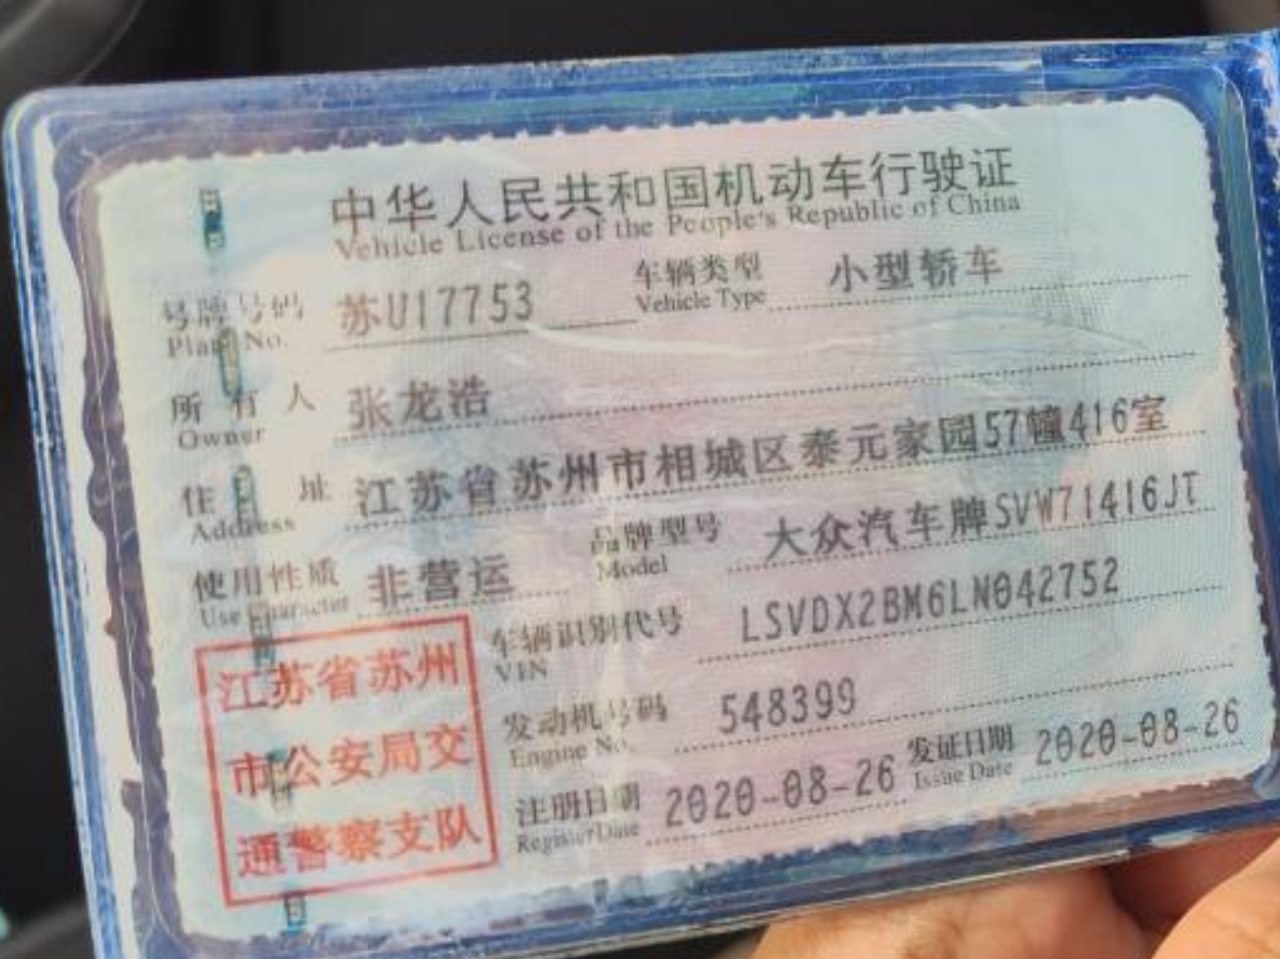 中华人民共和国机动车行驶证
Vehicle License of the People's Republic of China
号牌号码 苏U17753 车辆类型 小型轿车
Plate No. Vehicle Type
所有人 张龙浩
Owner
住址 江苏省苏州市相城区泰元家园57幢416室
Address
使用性质 非营运 品牌型号 大众汽车牌SVW71416JT
Use Character Model
车辆识别代号 LSVDX2BM6LN042752
VIN
发动机号码 548399
Engine No.
注册日期 2020-08-26 发证日期 2020-08-26
Register Date Issue Date
江苏省苏州
市公安局交
通警察支队